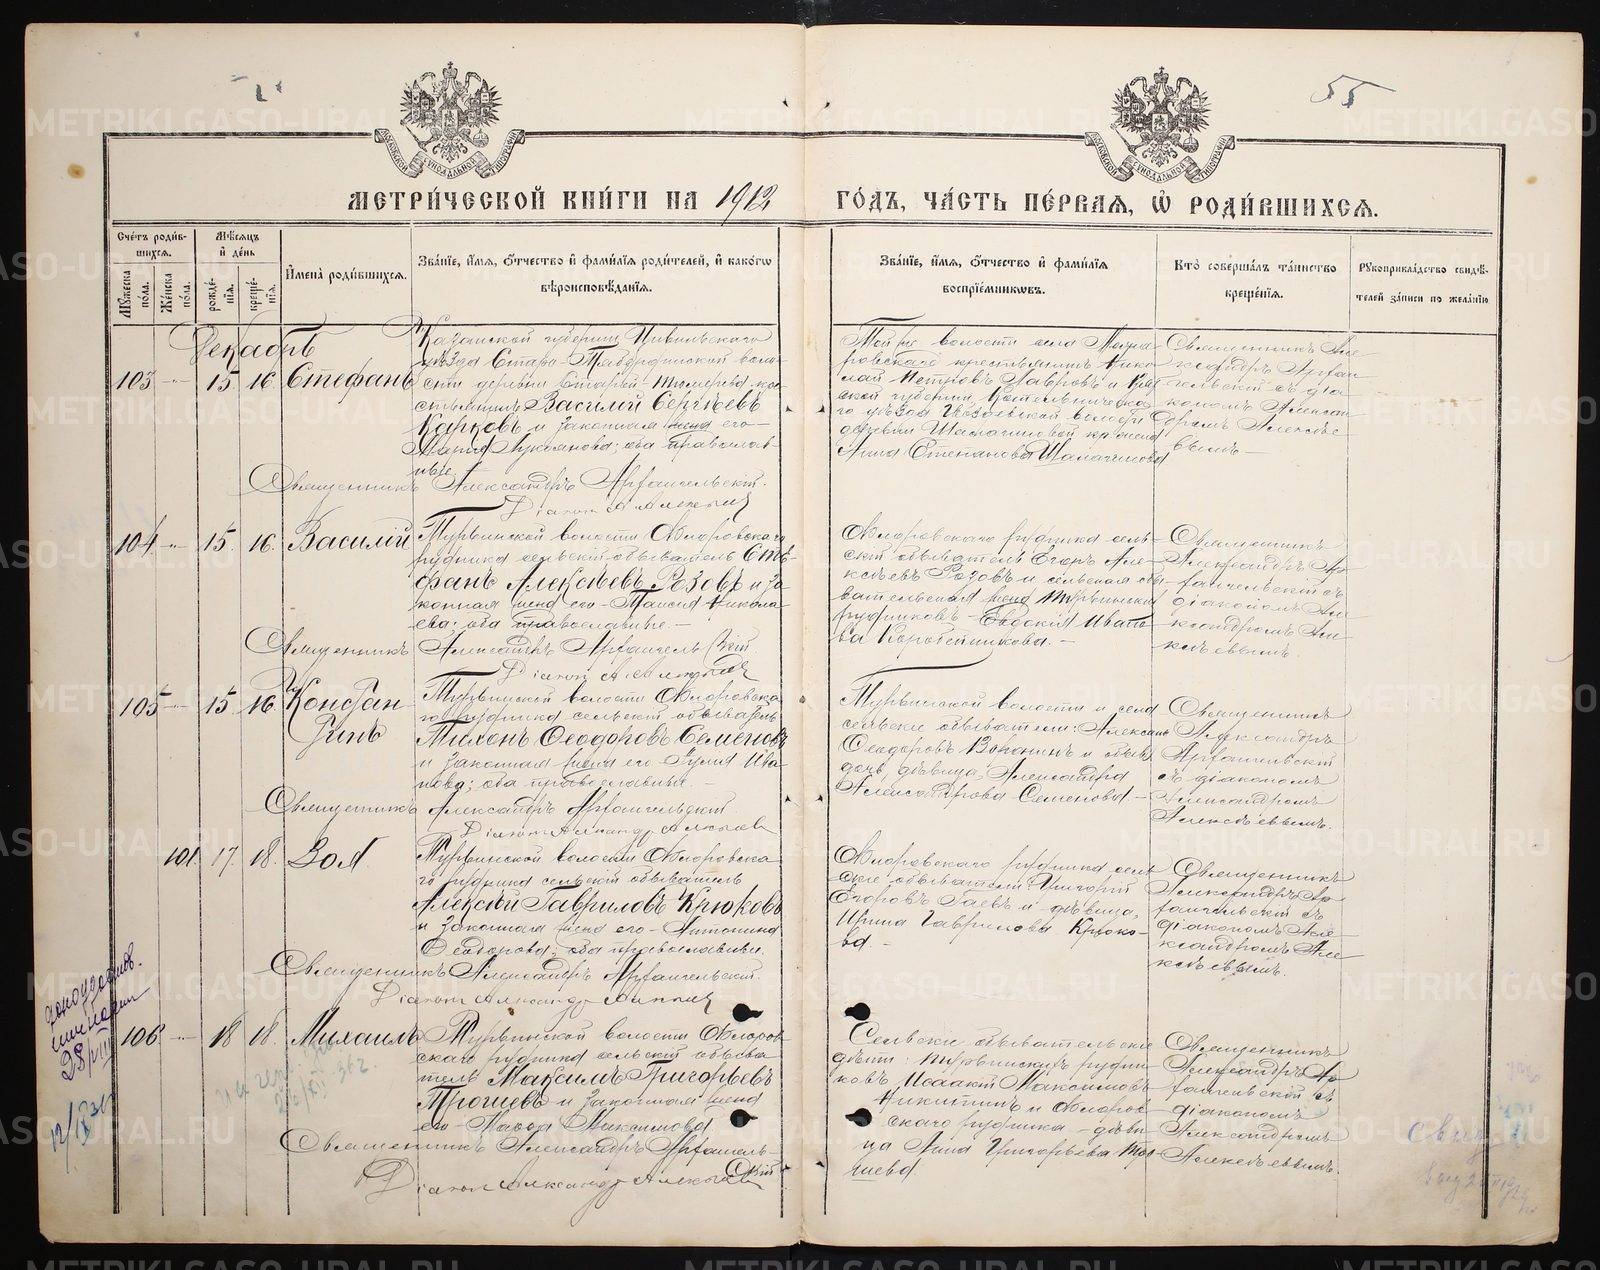 55
МЕТРИ́ЧЕСКОЙ КНИ́ГИ НА 1912 ГО́ДЪ, ЧА́СТЬ ПЕ́РВАЯ, Ѡ РОДИ́ВШИХСЯ.
Сче́тъ роди́вшихся.
Му́жеска по́ла.
Же́нска по́ла.
Мѣ́сяцъ и҆ де́нь
рожде́нїя.
креще́нїя.
И҆мена̀ роди́вшихся.
Зва́нїе, и҆́мя, ѻ҆́тчество и҆ фами́лїя роди́телей, и҆ како́гѡ
вѣроисповѣ́данїя.
Зва́нїе, и҆́мя, ѻ҆́тчество и҆ фами́лїя
воспрїе́мникѡвъ.
Кто̀ соверша́лъ та́инство
креще́нїя.
Рꙋкоприкла́дство свидѣ́-
телей за́писи по жела́нїю
Декабрь
103 15 16 Стефанъ
Казанской губерніи Цивильскаго
уѣзда Старо-
сти деревни Старый-Тюмерева кре-
стьянинъ Василій Сергѣевъ
и законная жена его
Марія Лукіанова; оба православ-
ные.
Священникъ Александръ Архангельскій.
Діаконъ А Алексѣевъ
Той же волости села
крестьянинъ Нико-
лай Петровъ Лавровъ и Вят-
ской губерніи, Котельническа-
го уѣзда волости
деревни
Анна Степанова
Священникъ Але-
ксандръ Архан-
гельскій съ діа-
кономъ Алексан-
дромъ Алексѣе-
вымъ.
104 15. 16. Василій
Турьинской волости Фроловскаго
рудника сельскій обыватель Сте-
фанъ Алексѣевъ Розовъ и за-
конная жена его - Таисія Никола-
ева; оба православные.
Священникъ Александръ Архангельскій
Діаконъ А. Алексѣевъ
Фроловскаго рудника сель-
скій обыватель Егоръ Але-
ксѣевъ Розовъ и сельская обы-
вательская жена Турьинскихъ
рудниковъ - Евдокія Ивано-
ва Коробейникова.
Священникъ
Александръ Ар-
хангельскій съ
діакономъ Але-
ксандромъ Але-
ксѣевымъ.
105 15 16 Констан-
тинъ
Турьинской волости Фроловска-
го рудника сельскій обыватель
Тихонъ Ѳеодоровъ Семеновъ
и законная жена его - Юлія Ива-
нова; оба православные.
Священникъ Александръ Архангельскій
Діаконъ Александръ Алексѣевъ
Турьинской волости и села
сельскіе обыватели: Александръ
Ѳеодоровъ Воронинъ и обыв.
дочь, дѣвица, Александра
Александрова Семенова.
Священникъ
Александръ
Архангельскій
съ діакономъ
Александромъ
Алексѣевымъ.
101. 17. 18. Зоя
Турьинской волости Фроловска-
го рудника сельскій обыватель
Алексѣй Гавриловъ Крюковъ
и законная жена его - Антонина
Ѳеодорова; оба православные.
Священникъ Александръ Архангельскій.
Діаконъ Александръ Алексѣевъ
Фроловскаго рудника сель-
скіе обыватели: Григорій
Егоровъ Гаевъ и дѣвица,
Ирина Гаврилова Крюко-
ва.
Священникъ
Александръ Ар-
хангельскій съ
діакономъ Але-
ксандромъ Але-
ксѣевымъ.
106 18 18. Михаилъ
Турьинской волости Фролов-
скаго рудника сельскій обыва-
тель Максимъ Григорьевъ
Трошевъ и законная жена
его - Максимова
Священникъ Александръ Архангель-
скій
Діаконъ Александръ Алексѣевъ
Сельскіе обывательскіе
дѣти: Турьинскихъ рудни-
ковъ Исаакій Максимовъ
Никитинъ и Фролов-
скаго рудника - дѣви-
ца Анна Григорьева Тро-
шева
Священникъ
Александръ Ар-
хангельскій съ
діакономъ
Александромъ
Алексѣевымъ.
METRIKI.GASO-URAL.RU